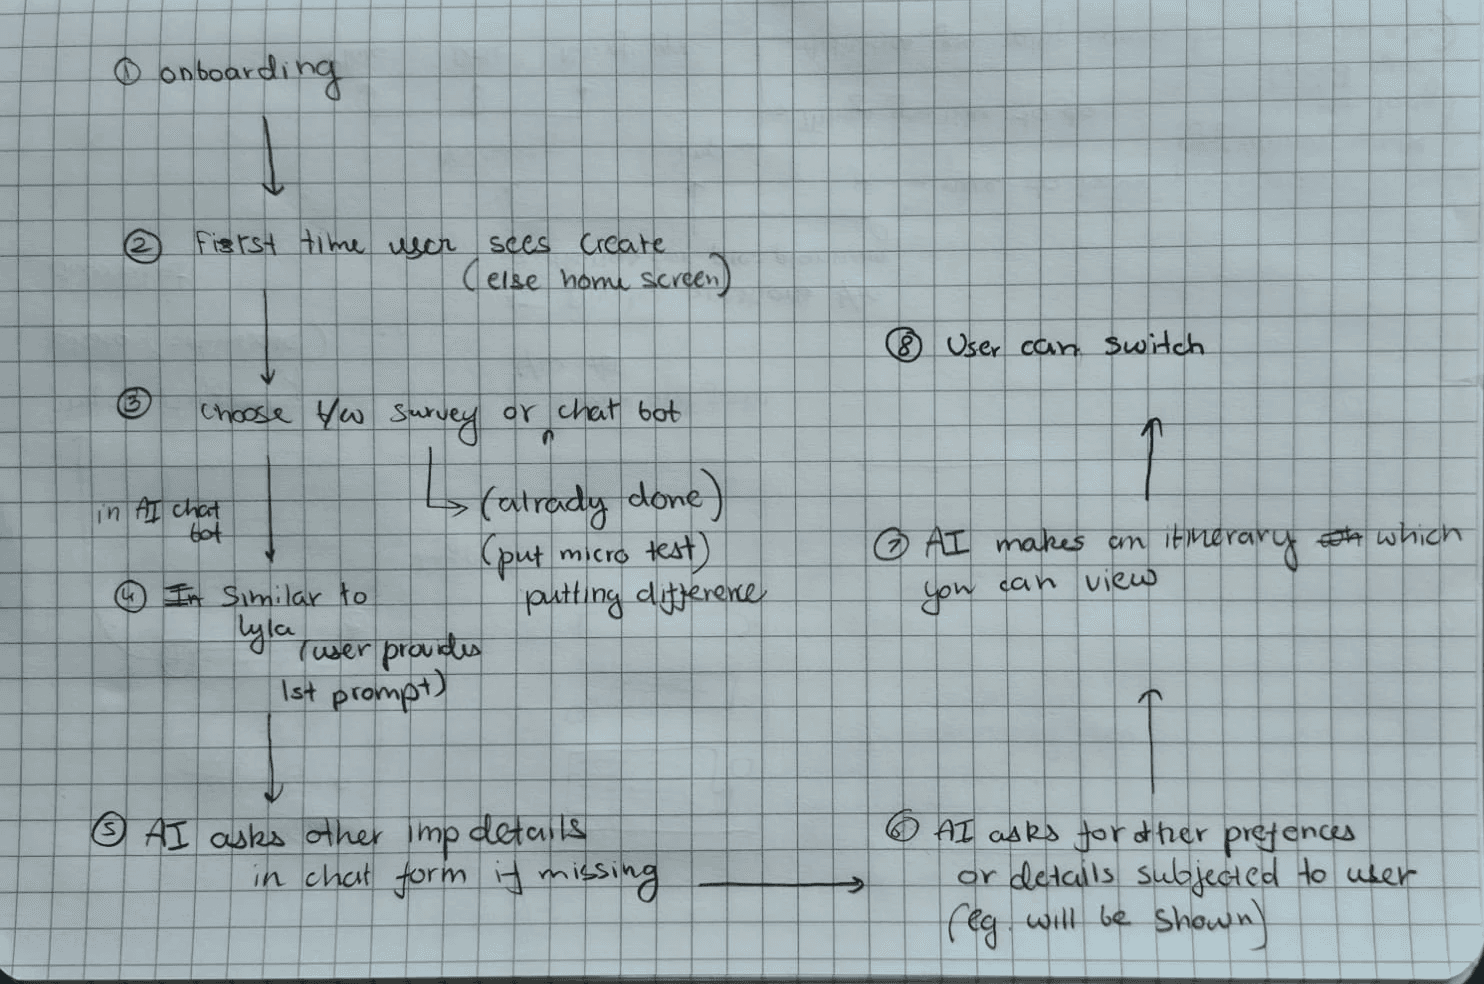 ① onboarding
② First time user sees create
(else home screen)
③ choose b/w survey or chat bot
(alrady done)
(put micro test)
putting difference
in AI chat
bot
④ In Similar to
lyla
(user provides
1st prompt)
⑤ AI asks other imp details
in chat form if missing
⑥ AI asks for other prefences
or details subjected to user
(eg. will be shown)
⑦ AI makes an itinerary which
you can view
⑧ User can switch